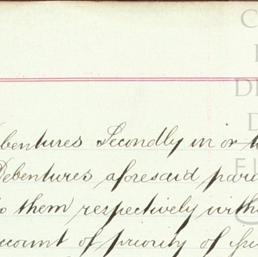 bentures Secondly in or t
Debentures aforesaid par
to them respectively with
ccount of priority of